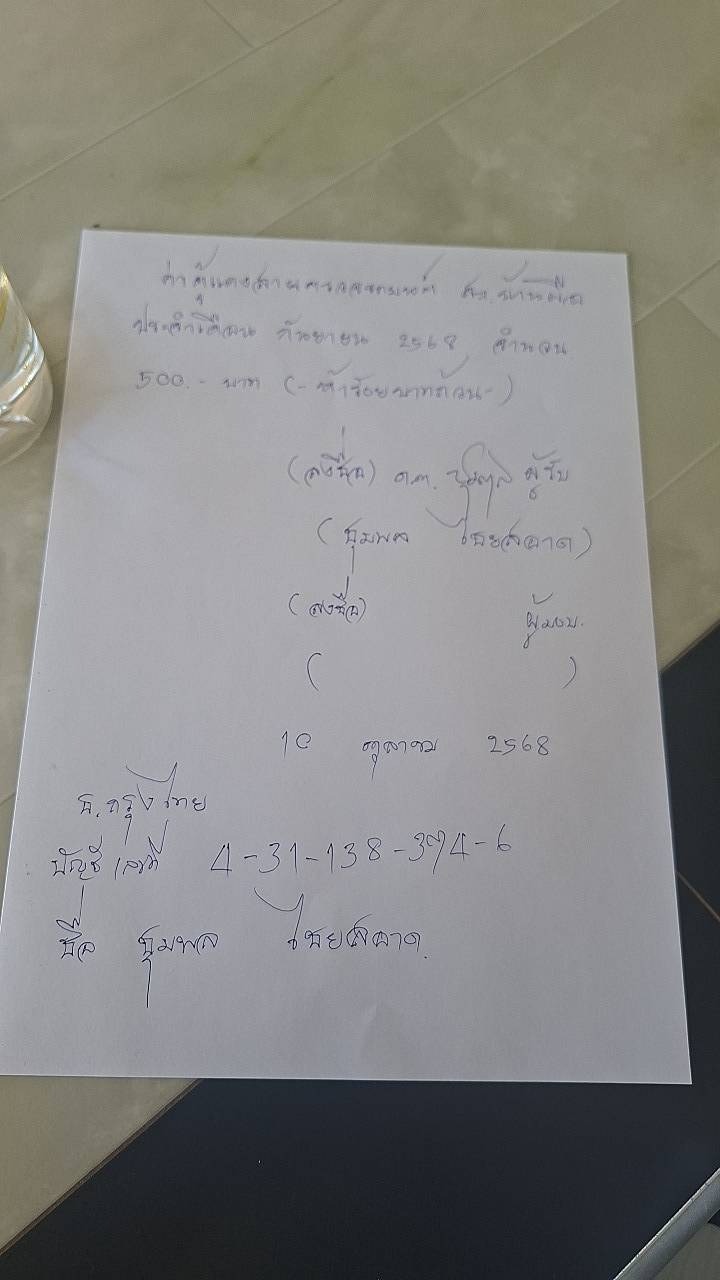 ค่าตู้แดงสายตรวจรถยนต์ สภ.บ้านผือ
ประจำเดือน กันยายน 2568 จำนวน
500.- บาท (-ห้าร้อยบาทถ้วน-)
(ลงชื่อ) ด.ต. ชุมพล ผู้รับ
(ชุมพล ไชยสอาด)
(ลงชื่อ) ผู้มอบ
( )
10 ตุลาคม 2568
ธ.กรุงไทย
บัญชี เลขที่ 4-31-138-374-6
ชื่อ ชุมพล ไชยสอาด.